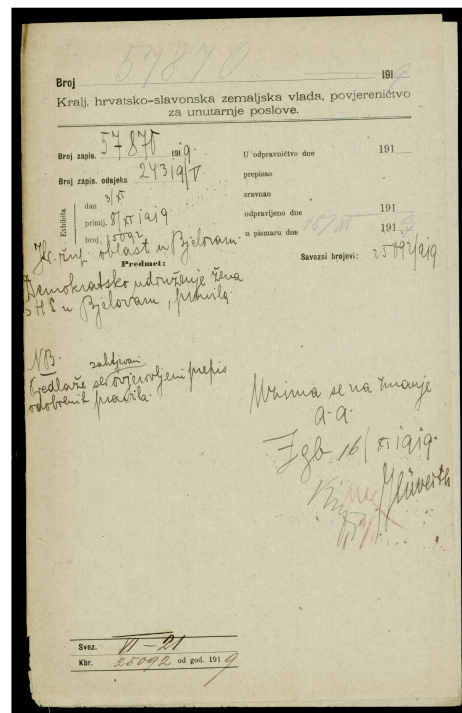 57870
Broj 1919
Kralj. hrvatsko-slavonska zemaljska vlada, povjereničtvo
za unutarnje poslove.
Broj zapis. 57870 1919.
Broj zapis. odsjeka 24319/V
Exhibita
dan 3/XI
primlj. 8/XI 1919
broj. 25092
U odpravničtvo dne 191
prepisao
sravnao
odpravljeno dne 191
u pismaru dne 18/XI 1919
Savezni brojevi: 25092/919
Kr. žup. oblast u Bjelovaru.
Predmet:
Demokratsko udruženje žena
SHS u Bjelovaru, pravila.
NB. zahtjevani
Predlaže se ovjerovljeni prepis
odobrenih pravila.
Uzima se na znanje
a-a.
Zgb 16/XI 1919.
Svez. VI-21
Kbr. 25092 od god. 1919